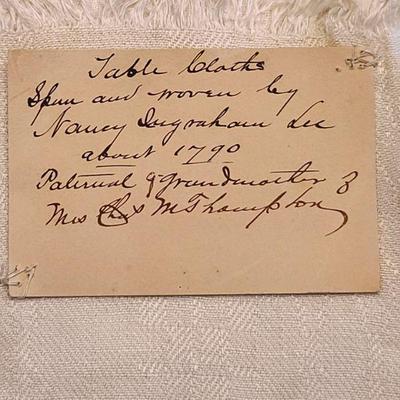 Table Cloths
Spun and woven by
Nancy Ingraham Lee
about 1790
Paternal Grandmother of
Mrs Chas M Thompson